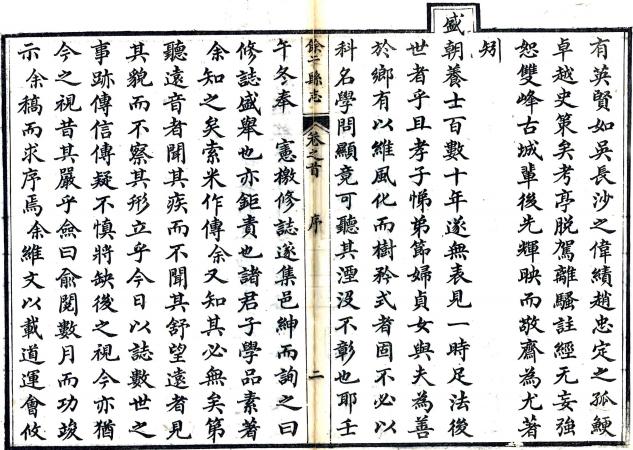 有英賢如吳長沙之偉績趙忠定之孤鯁
卓越史第矣考亭脫駕離騷註經无妄強
恕雙峰古城輩後先輝映而敬齋為尤著
矧
盛
朝養士百數十年遂無表見一時足法後
世者乎且孝子悌弟節婦貞女與夫為善
於鄉有以維風化而樹矜式者固不必以
科名學問顯竟可聽其湮沒不彰也耶壬
餘干縣志
卷之首
序
二
午冬奉 憲檄修誌遂集邑紳而詢之曰
修誌盛舉也亦鉅責也諸君子學品素著
余知之矣索米作傳余又知其必無矣第
聽遠音者聞其疾而不聞其舒望遠者見
其貌而不察其形立乎今日以誌數世之
事跡傳信傳疑不慎將缺後之視今亦猶
今之視昔其嚴乎僉曰俞閱數月而功竣
示余稿而求序焉余維文以載道運會攸